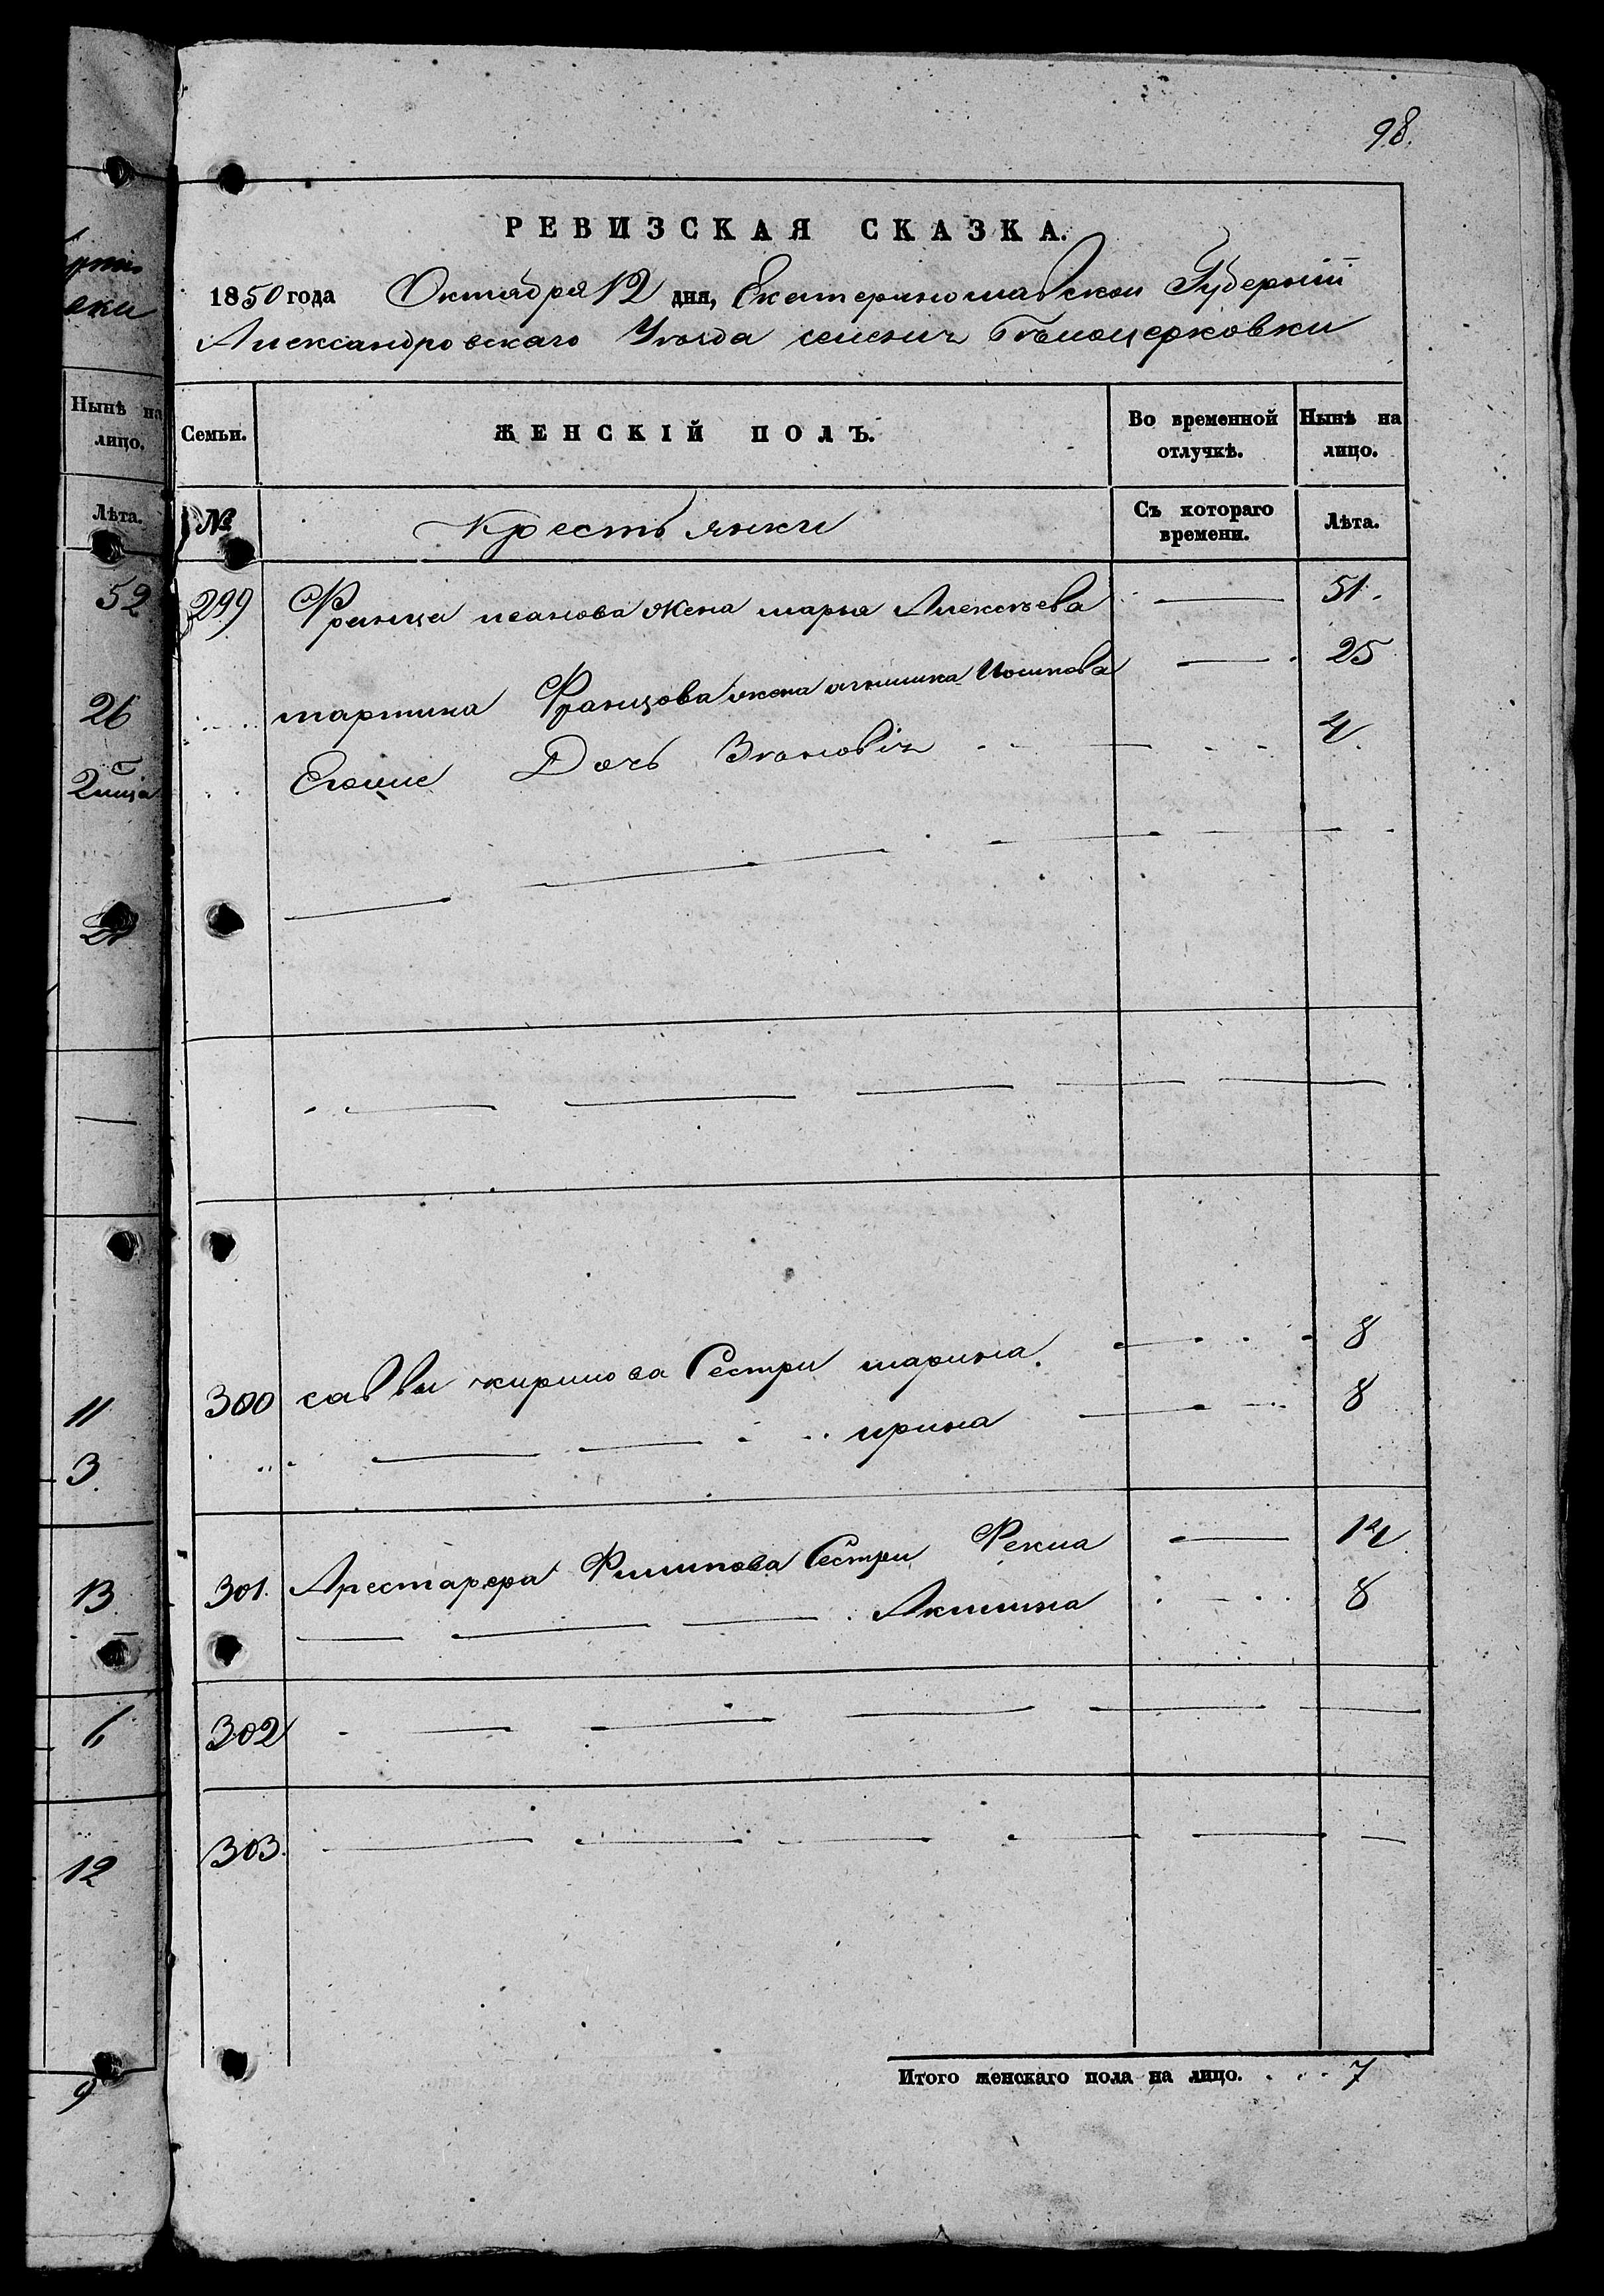 98.
РЕВИЗСКАЯ СКАЗКА.
1850 года Октября 12 дня, Екатеринославской Губерніи
Александровскаго Уѣзда селенія Бѣлоцерковки
Семьи. ЖЕНСКІЙ ПОЛЪ. Во временной отлучкѣ. Нынѣ на лицо.
№ Крестьянки Съ котораго времени. Лѣта.
299 Франца иванова жена марья Алексѣева 51.
мартина Францова жена 25
Егоже Дочь 4.
300 саввы кирилова Сестры марина. 8
ирина 8
301. Филипова Сестры Фекла 14
Акилина 8
302
303.
Итого женскаго пола на лицо. 7
Нынѣ на
лицо.
Лѣта.
52
26
11
3.
13
6
12
9